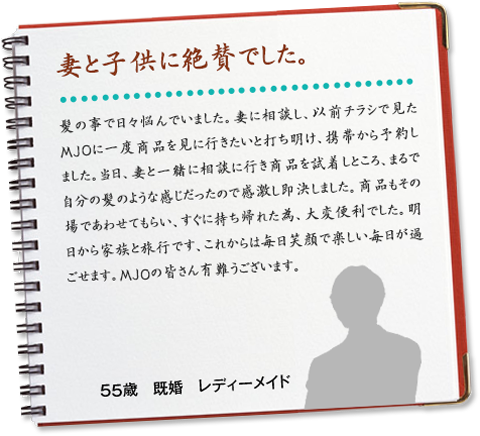 妻と子供に絶賛でした。
髪の事で日々悩んでいました。妻に相談し、以前チラシで見た
MJOに一度商品を見に行きたいと打ち明け、携帯から予約し
ました。当日、妻と一緒に相談に行き商品を試着しところ、まるで
自分の髪のような感じだったので感激し即決しました。商品もその
場であわせてもらい、すぐに持ち帰れた為、大変便利でした。明
日から家族と旅行です、これからは毎日笑顔で楽しい毎日が過
ごせます。MJOの皆さん有難うございます。
55歳　既婚　レディーメイド